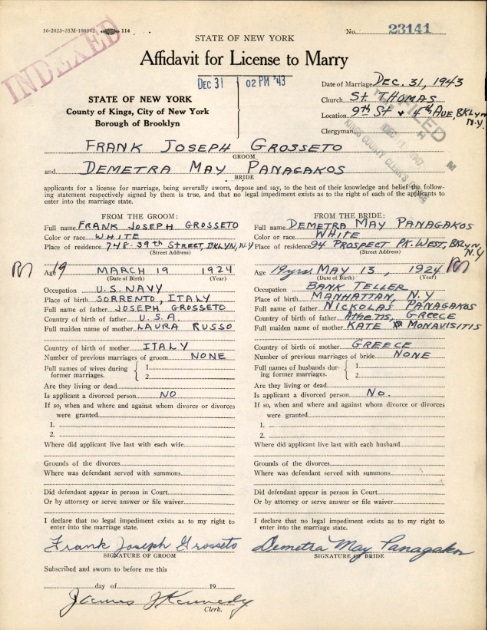 No. 23141
INDEXED
STATE OF NEW YORK
Affidavit for License to Marry
DEC 31 02 PM '43
STATE OF NEW YORK
County of Kings, City of New York
Borough of Brooklyn
Date of Marriage DEC. 31, 1943
Church ST. THOMAS
Location 9TH ST & 4TH AVE, BKLYN N.Y.
Clergyman
FILED
FRANK JOSEPH GROSSETO
GROOM
and DEMETRA MAY PANAGAKOS
BRIDE
applicants for a license for marriage, being severally sworn, depose and say, to the best of their knowledge and belief the follow-
ing statement respectively signed by them is true, and that no legal impediment exists as to the right of each of the applicants to
enter into the marriage state.
FROM THE GROOM:
Full name FRANK JOSEPH GROSSETO
Color or race WHITE
Place of residence 748-39TH STREET, BKLYN, N.Y
(Street Address)
Age 19 MARCH 19 1924
(Date of Birth) (Year)
Occupation U.S. NAVY
Place of birth SORRENTO, ITALY
Full name of father JOSEPH GROSSETO
Country of birth of father U.S.A.
Full maiden name of mother LAURA RUSSO
Country of birth of mother ITALY
Number of previous marriages of groom NONE
Full names of wives during former marriages. 1 2
Are they living or dead
Is applicant a divorced person NO
If so, when and where and against whom divorce or divorces
were granted
1.
2.
Where did applicant live last with each wife
Grounds of the divorces
Where was defendant served with summons
Did defendant appear in person in Court
Or by attorney or serve answer or file waiver
I declare that no legal impediment exists as to my right to
enter into the marriage state.
Frank Joseph Grosseto
SIGNATURE OF GROOM
FROM THE BRIDE:
Full name DEMETRA MAY PANAGAKOS
Color or race WHITE
Place of residence 94 PROSPECT PK. WEST, BKLYN, N.Y
(Street Address)
Age 19 yrs MAY 13, 1924
(Date of Birth) (Year)
Occupation BANK TELLER
Place of birth MANHATTAN, N.Y
Full name of father NICKOLAS PANAGAKOS
Country of birth of father ATHENS, GREECE
Full maiden name of mother KATE MONAVISITIS
Country of birth of mother GREECE
Number of previous marriages of bride NONE
Full names of husbands during former marriages. 1 2
Are they living or dead
Is applicant a divorced person NO.
If so, when and where and against whom divorce or divorces
were granted
1.
2.
Where did applicant live last with each husband
Grounds of the divorces
Where was defendant served with summons
Did defendant appear in person in Court
Or by attorney or serve answer or file waiver
I declare that no legal impediment exists as to my right to
enter into the marriage state.
Demetra May Panagakos
SIGNATURE OF BRIDE
Subscribed and sworn to before me this
day of 19
James J Kennedy
Clerk.